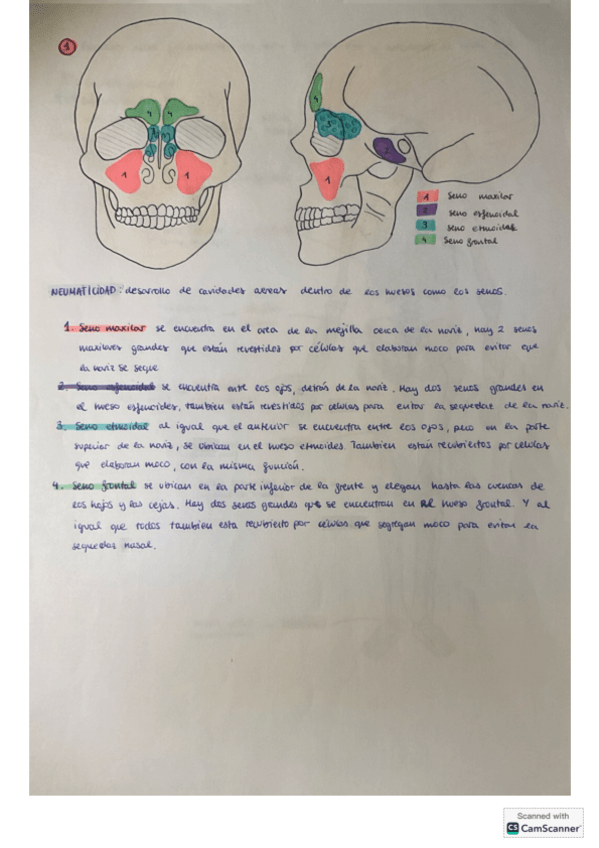 1
4 4
3 3
1 1
4
3
2
1
1 Seno maxilar
2 seno esfenoidal
3 seno etmoidal
4 Seno frontal
NEUMATICIDAD: desarrollo de cavidades aereas dentro de los huesos como los senos.
1. Seno maxilar se encuentra en el area de la mejilla cerca de la nariz, hay 2 senos
maxilares grandes que están revestidos por células que elaboran moco para evitar que
la nariz se seque
2. Seno esfenoidal se encuentra entre los ojos, detrás de la nariz. Hay dos senos grandes en
el hueso esfenoides, tambien están revestidos por células para evitar la sequedad de la nariz.
3. Seno etmoidal al igual que el anterior se encuentra entre los ojos, pero en la parte
superior de la nariz, se ubican en el hueso etmoides. Tambien están recubiertos por células
que elaboran moco, con la misma función.
4. Seno frontal se ubican en la parte inferior de la frente y llegan hasta las cuencas de
los hojos y las cejas. Hay dos senos grandes que se encuentran en el hueso frontal. Y al
igual que todos tambien esta recubierto por células que segregan moco para evitar la
sequedas nasal.
Scanned with
CS CamScanner